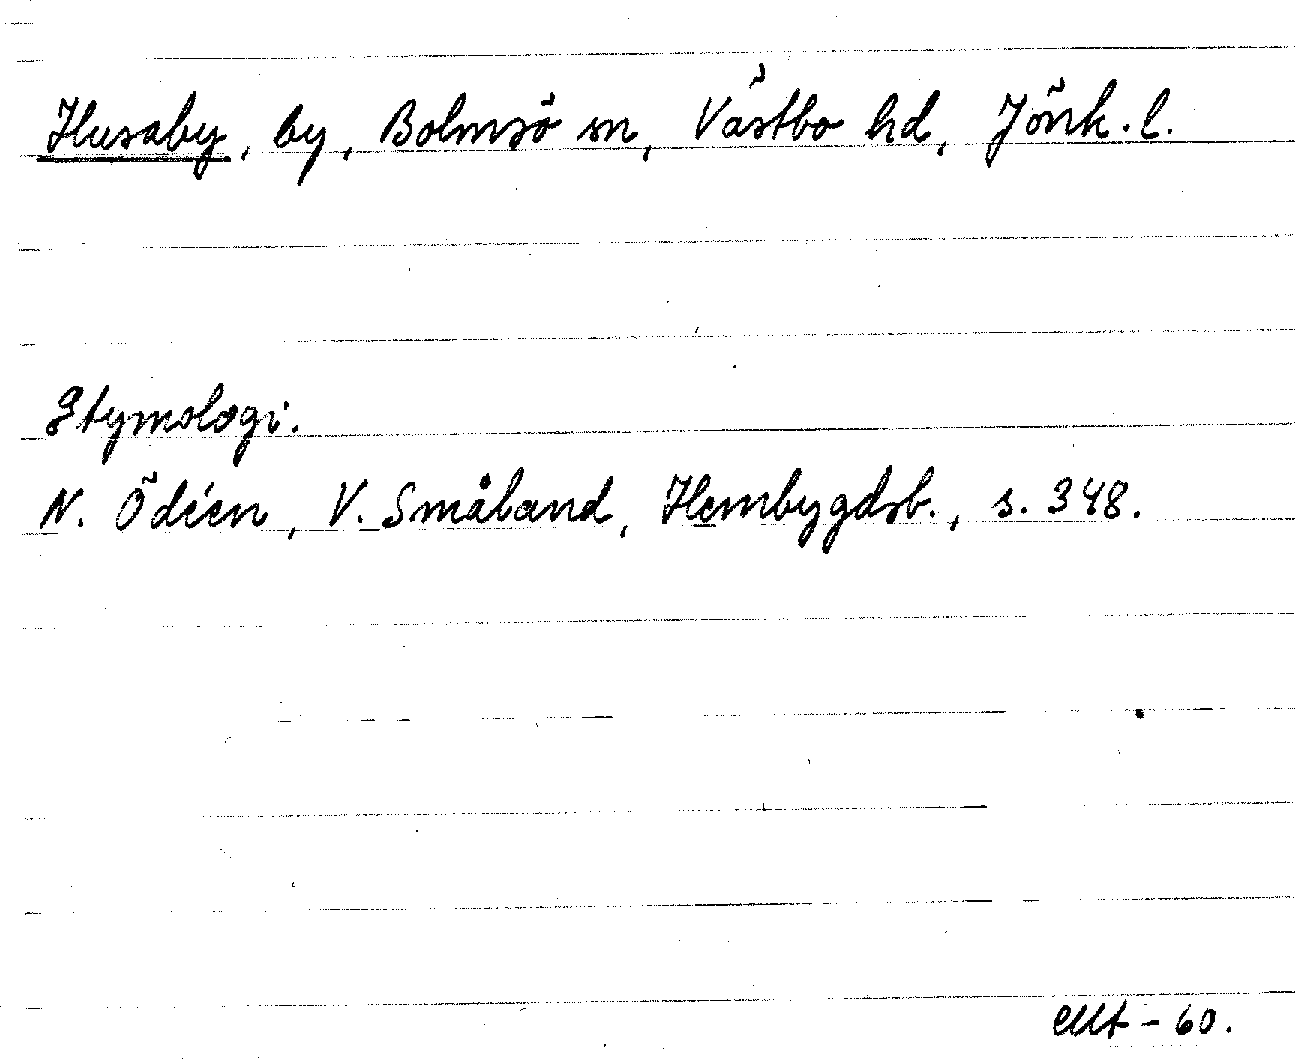 Husaby, by, Bolmsö sn, Västbo hd, Jönk. l.
Etymologi.
N. Ödéen, V. Småland, Hembygdsb., s. 348.
- 60.